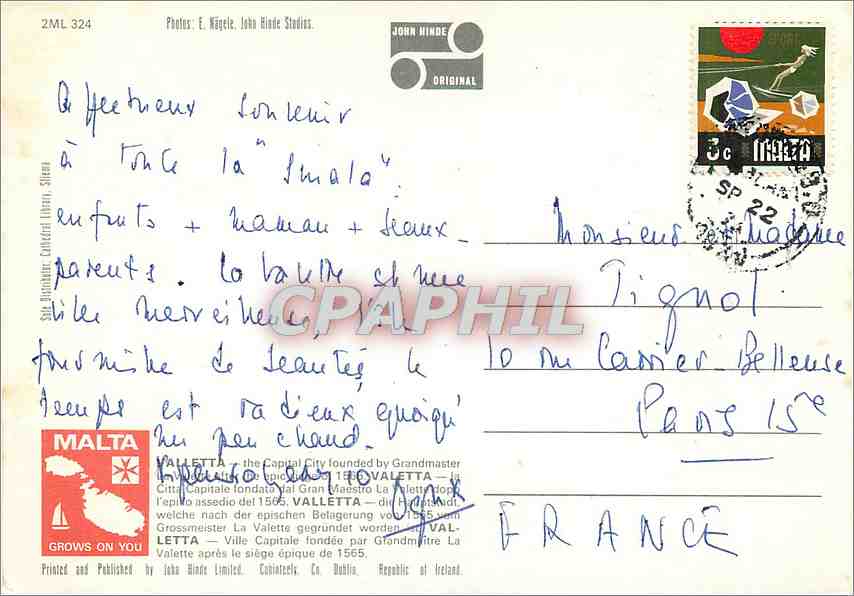 2ML 324
Photos: E. Nägele, John Hinde Studios.
JOHN HINDE
ORIGINAL
SPORT
3c MALTA
SP 22
Affectueux souvenir
à toute la "Smala".
enfants + maman + beaux-
parents. La Valette est une
ville merveilleuse,
fourmille de beautés, le
temps est radieux quoiqu'
un peu chaud.
Monsieur et Madame
Tignol
10 rue Carrier-Belleuse
Paris 15e
FRANCE
CPAPHIL
Sole Distributor, Cathedral Library, Sliema
MALTA
GROWS ON YOU
VALLETTA — the Capital City founded by Grandmaster
1565. VALLETTA — la
Città Capitale fondata dal Gran Maestro La Valette dopo
l'epico assedio del 1565. VALLETTA — die Hauptstadt,
welche nach der epischen Belagerung von 1565 vom
Grossmeister La Valette gegründet worden ist. VAL-
LETTA — Ville Capitale fondée par Grandmaître La
Valette après le siège épique de 1565.
Printed and Published by John Hinde Limited, Cabinteely, Co. Dublin, Republic of Ireland.